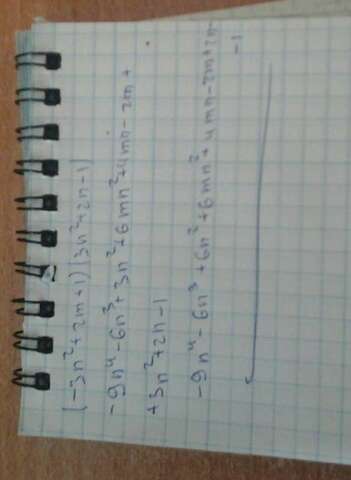 (-3n²+2m+1)(3n²+2n-1)
-9n⁴-6n³+3n²+6mn²+4mn-2m+
+3n²+2n-1
-9n⁴-6n³+6n²+6mn²+4mn-2m+2n-
-1